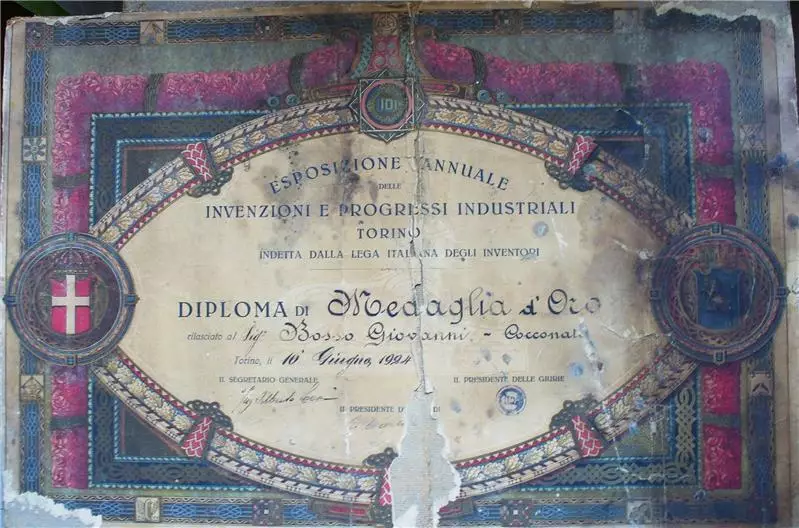 IDI
ESPOSIZIONE ANNUALE
DELLE
INVENZIONI E PROGRESSI INDUSTRIALI
TORINO
INDETTA DALLA LEGA ITALIANA DEGLI INVENTORI
DIPLOMA DI Medaglia d'Oro
rilasciato al Sigr. Bosso Giovanni - Cocconato
Torino, li 10 Giugno, 1924
IL SEGRETARIO GENERALE IL PRESIDENTE DELLE GIURIE
IL PRESIDENTE